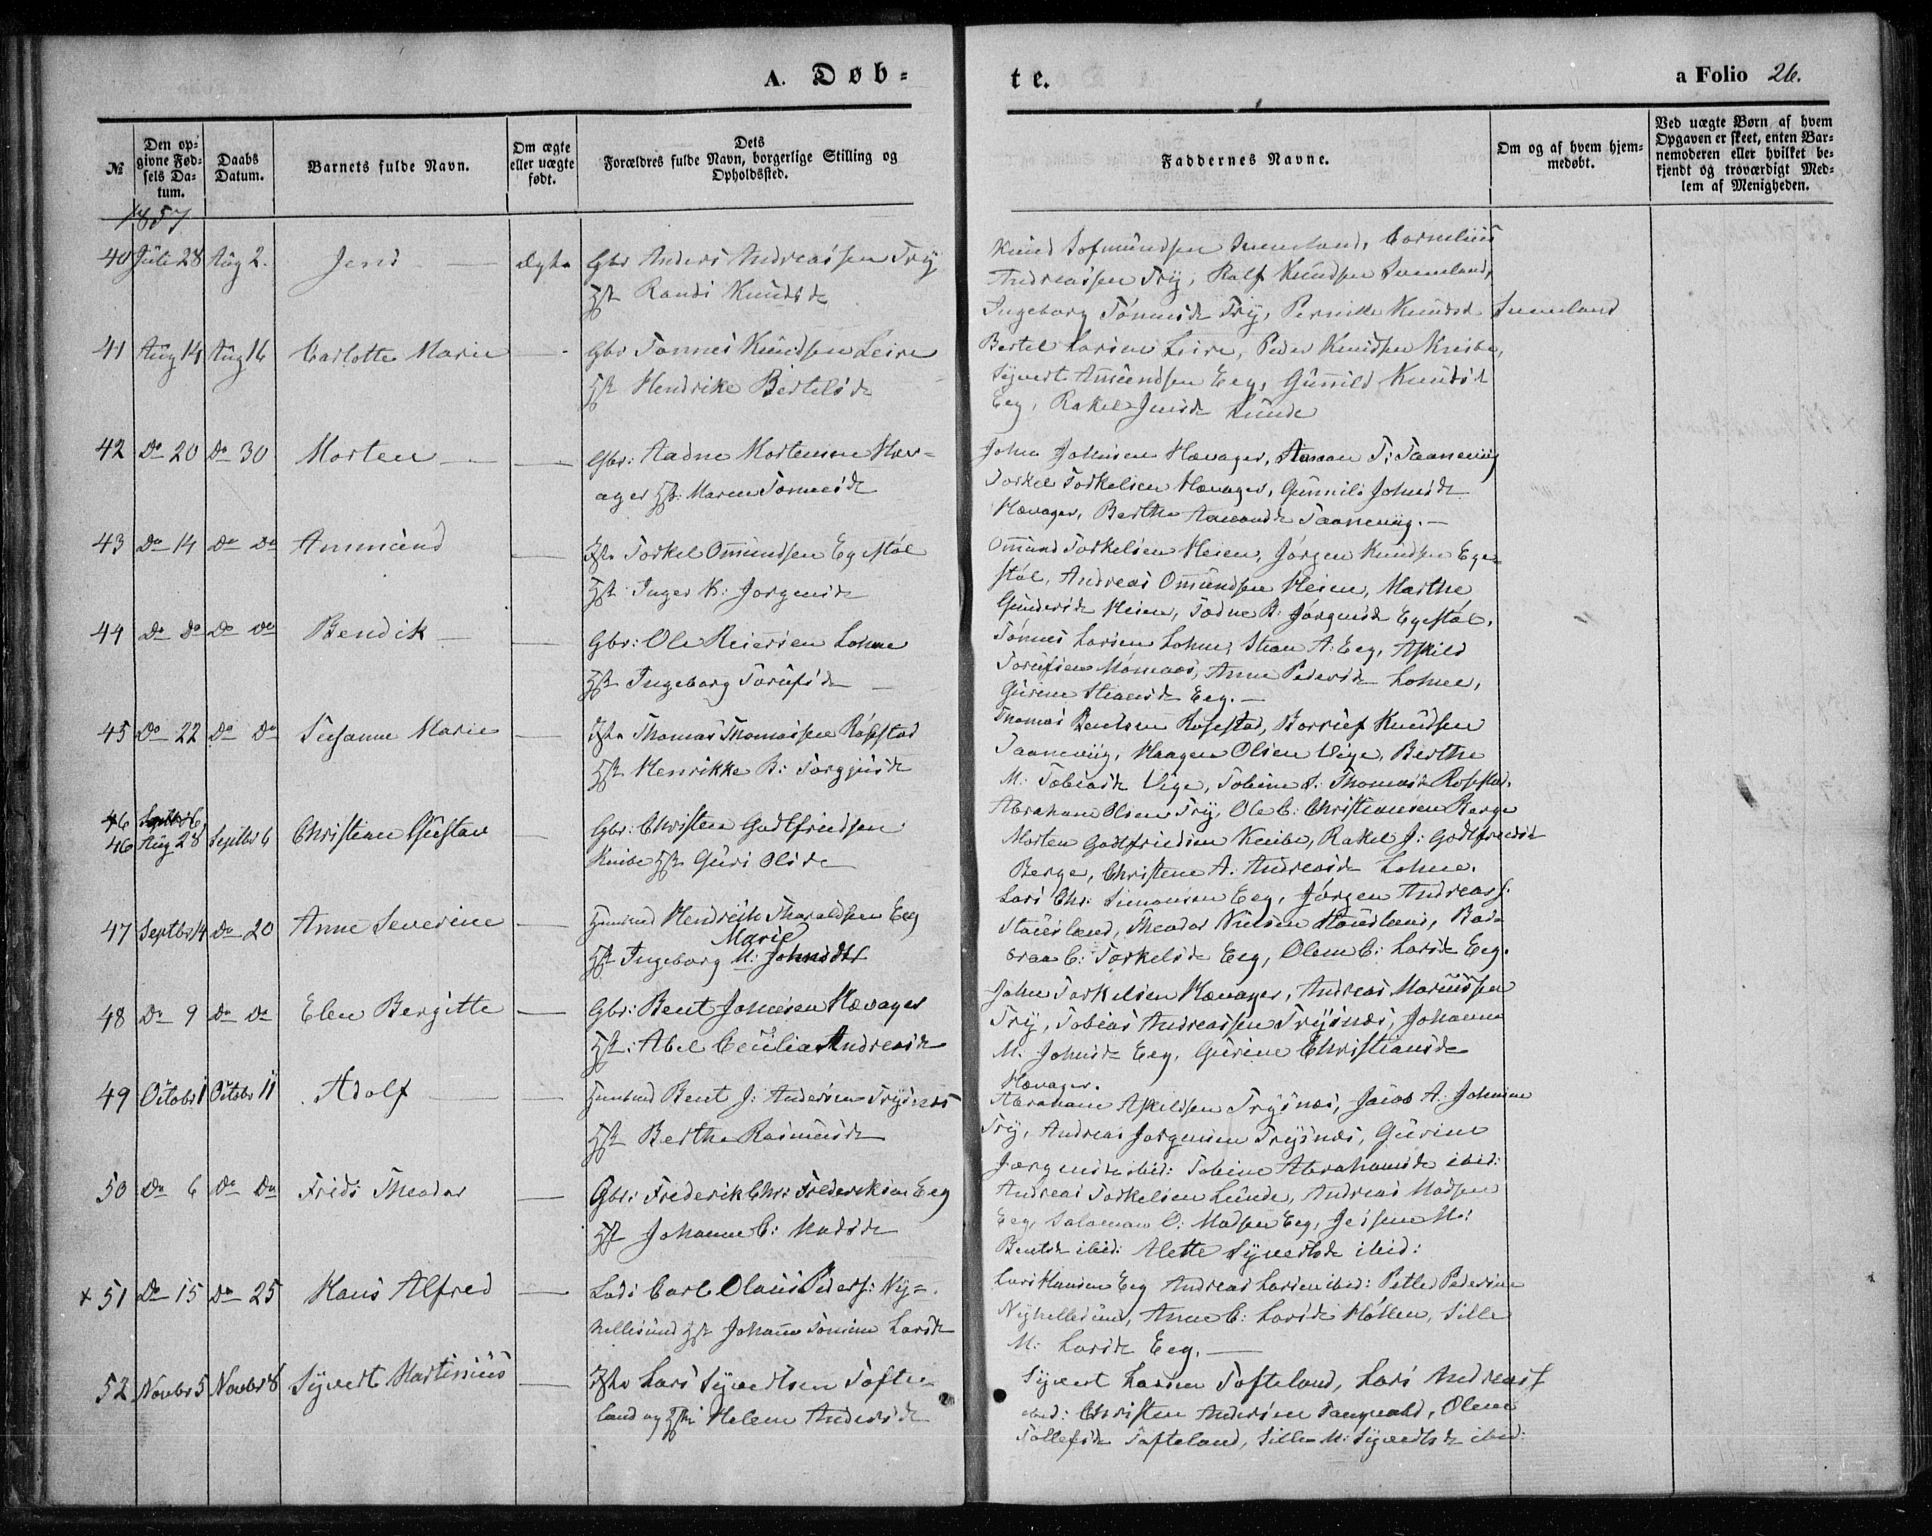 A. Døb=
te.
a Folio 26.
№
Den op-
givne Fød-
sels Da-
tum.
Daabs
Datum.
Barnets fulde Navn.
Om ægte
eller uægte
født.
Dets
Forældres fulde Navn, borgerlige Stilling og
Opholdssted.
Faddernes Navne.
Om og af hvem hjem-
medøbt.
Ved uægte Børn af hvem
Opgaven er skeet, enten Bar-
nemoderen eller hvilket be-
kjendt og troværdigt Med-
lem af Menigheden.
1857
40 Juli 28 Aug 2. Jens — Ægte Gbr Anders Andreassen Try
Hst Randi Knudsd
Knud Sofmundsen Suneland, Cornelius
Andreassen Try, Ralf Knudsen Suneland,
Ingeborg Tønnesd Try, Pernille Knudsd Suneland
41 Aug 14 Aug 16 Carlotte Marie — Gbr Tønnes Knudsen Leire
Hst Hendrike Bertelsd
Bertel Larsen Leire, Peder Knudsen Knibe,
Syvert Amundsen Eeg, Gunild Knudsd
Eeg, Rakel Jensd Lunde
42 Do 20 Do 30 Morten — — Gbr: Aadne Mortensen Hæv-
ager Hst: Maren Tønnesd
John Johnsen Hævager, Aanon T: Taanevig
Torkel Torkelsen Hævager, Gunnild Johnsd
Hævager, Berthe Aanonsd Taanevig. —
43 Do 14 Do Do Ammund — Hst Torkel Omundsen Egestøl
Hst Inger K: Jørgensd
Omund Torkelsen Heien, Jørgen Knudsen Ege-
støl, Andreas Omundsen Heien, Marthe
Gundersd Heien, Tødne B: Jørgensd Egestøl.
44 Do Do Do Do Bendik — — Gbr: Ole Reiersen Lohne
Hst Ingeborg Torufsd —
Tønnes Larsen Lohne, Stian A: Eeg, Askild
Torufsen Monaas, Anne Pedersd Lohne,
Gurine Stiansd Eeg. —
45 Do 22 Do Do Susanne Marie — Thomas Thomassen Rosstad
Hst Henrikke B: Torgjusd
Thomas Bentsen Rosstad, Borruf Knudsen
Taanevig, Haagen Olsen Vige, Berthe
M: Tobiasd Vige, Tobine S: Thomasd Rosstad.
46 Septbr 6
46 Aug 28 Septbr 6 Christian Gustav — Gbr: Christen Godtfriedsen
Knibe Hst Guri Olsd
Abraham Olsen Try, Ole C: Christiansen Berge
Morten Godtfriedsen Knibe, Rakel J: Godtfriedsd
Berge, Christene A: Andreasd Lohne.
47 Septbr 14 Do 20 Anne Severine — Hendrik Tharaldsen Eeg
Marie
Hst Ingeborg M: Johnsdtr
Lars Chr: Simonsen Eeg, Jørgen Andreass:
Stausland, Theodor Nielsen Stausland, Bar-
braa C: Torkelsd Eeg, Olene C: Larsd Eeg.
48 Do 9 Do Do Elen Bergitte — Gbr: Bent Johnsen Hævager
Hst: Abel Cecilia Andreasd
John Torkelsen Hævager, Andreas Mariussen
Try, Tobias Andreassen Trysnæs, Johanne
M. Johnsd Eeg, Gurine Christiansd
Hævager.
49 Octobr 1 Octobr 11 Adolf — — Bent J: Andersen Trysnæs
Hst Berthe Rasmusd
Abraham Askildsen Trysnæs, Jacob A. Johnsen
Try, Andreas Jørgensen Trysnæs, Gurine
Jørgensd ibid: Tobine Abrahamsd ibid:
50 Do 6 Do Do Frids Theodor — Gbr: Frederik Chr: Frederiksen Eeg
Hst Johanne C: Madsd
Andreas Torkelsen Lunde, Andreas Madsen
Eeg, Salomon O: Madsen Eeg, Jessine M:
Bentsd ibid: Alette Syvertsd ibid:
× 51 Do 15 Do 25 Hans Alfred — Lods Carl Olaus Peders: Ny=
hellesund Hst Johanne Tomine Larsd
Lars Hansen Eeg Andreas Larsen ibid: Petter Pedersen
Nyhellesund, Anne C: Larsd Høllen, Sille
M: Larsd Eeg. —
52 Novbr 5 Novbr 8 Syvert Martinius — Lars Syvertsen Tofte-
land og Hst Helene Andersd
Syvert Larsen Tofteland, Lars Andreass
ibid: Christen Andersen Tangvald, Olene
Tollefsd Tofteland, Sille M: Syvertsd ibid: